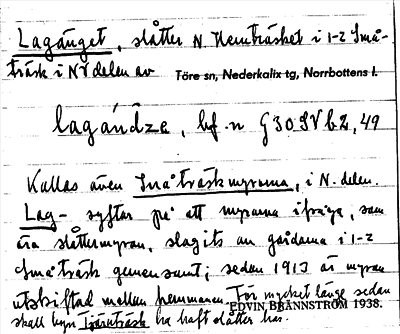 Lagänget, slåtter N Hemträsket i 1-2 Små-
träsk i NV delen av Töre sn, Nederkalix tg, Norrbottens l.
lagándze, bf. n G30SVb2,49
Kallas även Småträskmyrarna, i N. delen.
Lag- syftar på att myrarna ifråga, som
äro slåttermyrar, slagits av gårdarna i 1-2
Småträsk gemensamt; sedan 1913 är myran
utskiftad mellan hemmanen. För mycket länge sedan
skall byn Tjärnträsk ha haft slåtter här.
EDVIN BRÄNNSTRÖM 1938.